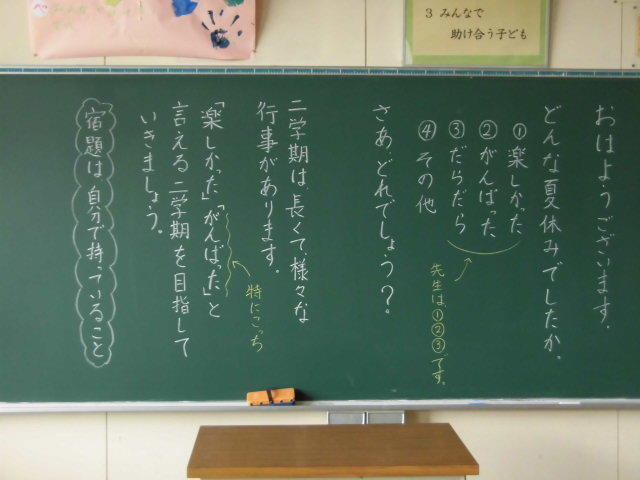 3 みんなで
助け合う子ども
おはようございます。
どんな夏休みでしたか。
①楽しかった
②がんばった
③だらだら
④その他
先生は①②③です。
さあどれでしょう?。
二学期は、長くて、様々な
行事があります。
特にこっち
「楽しかった」「がんばった」と
言える二学期を目指して
いきましょう。
宿題は自分で持っていること